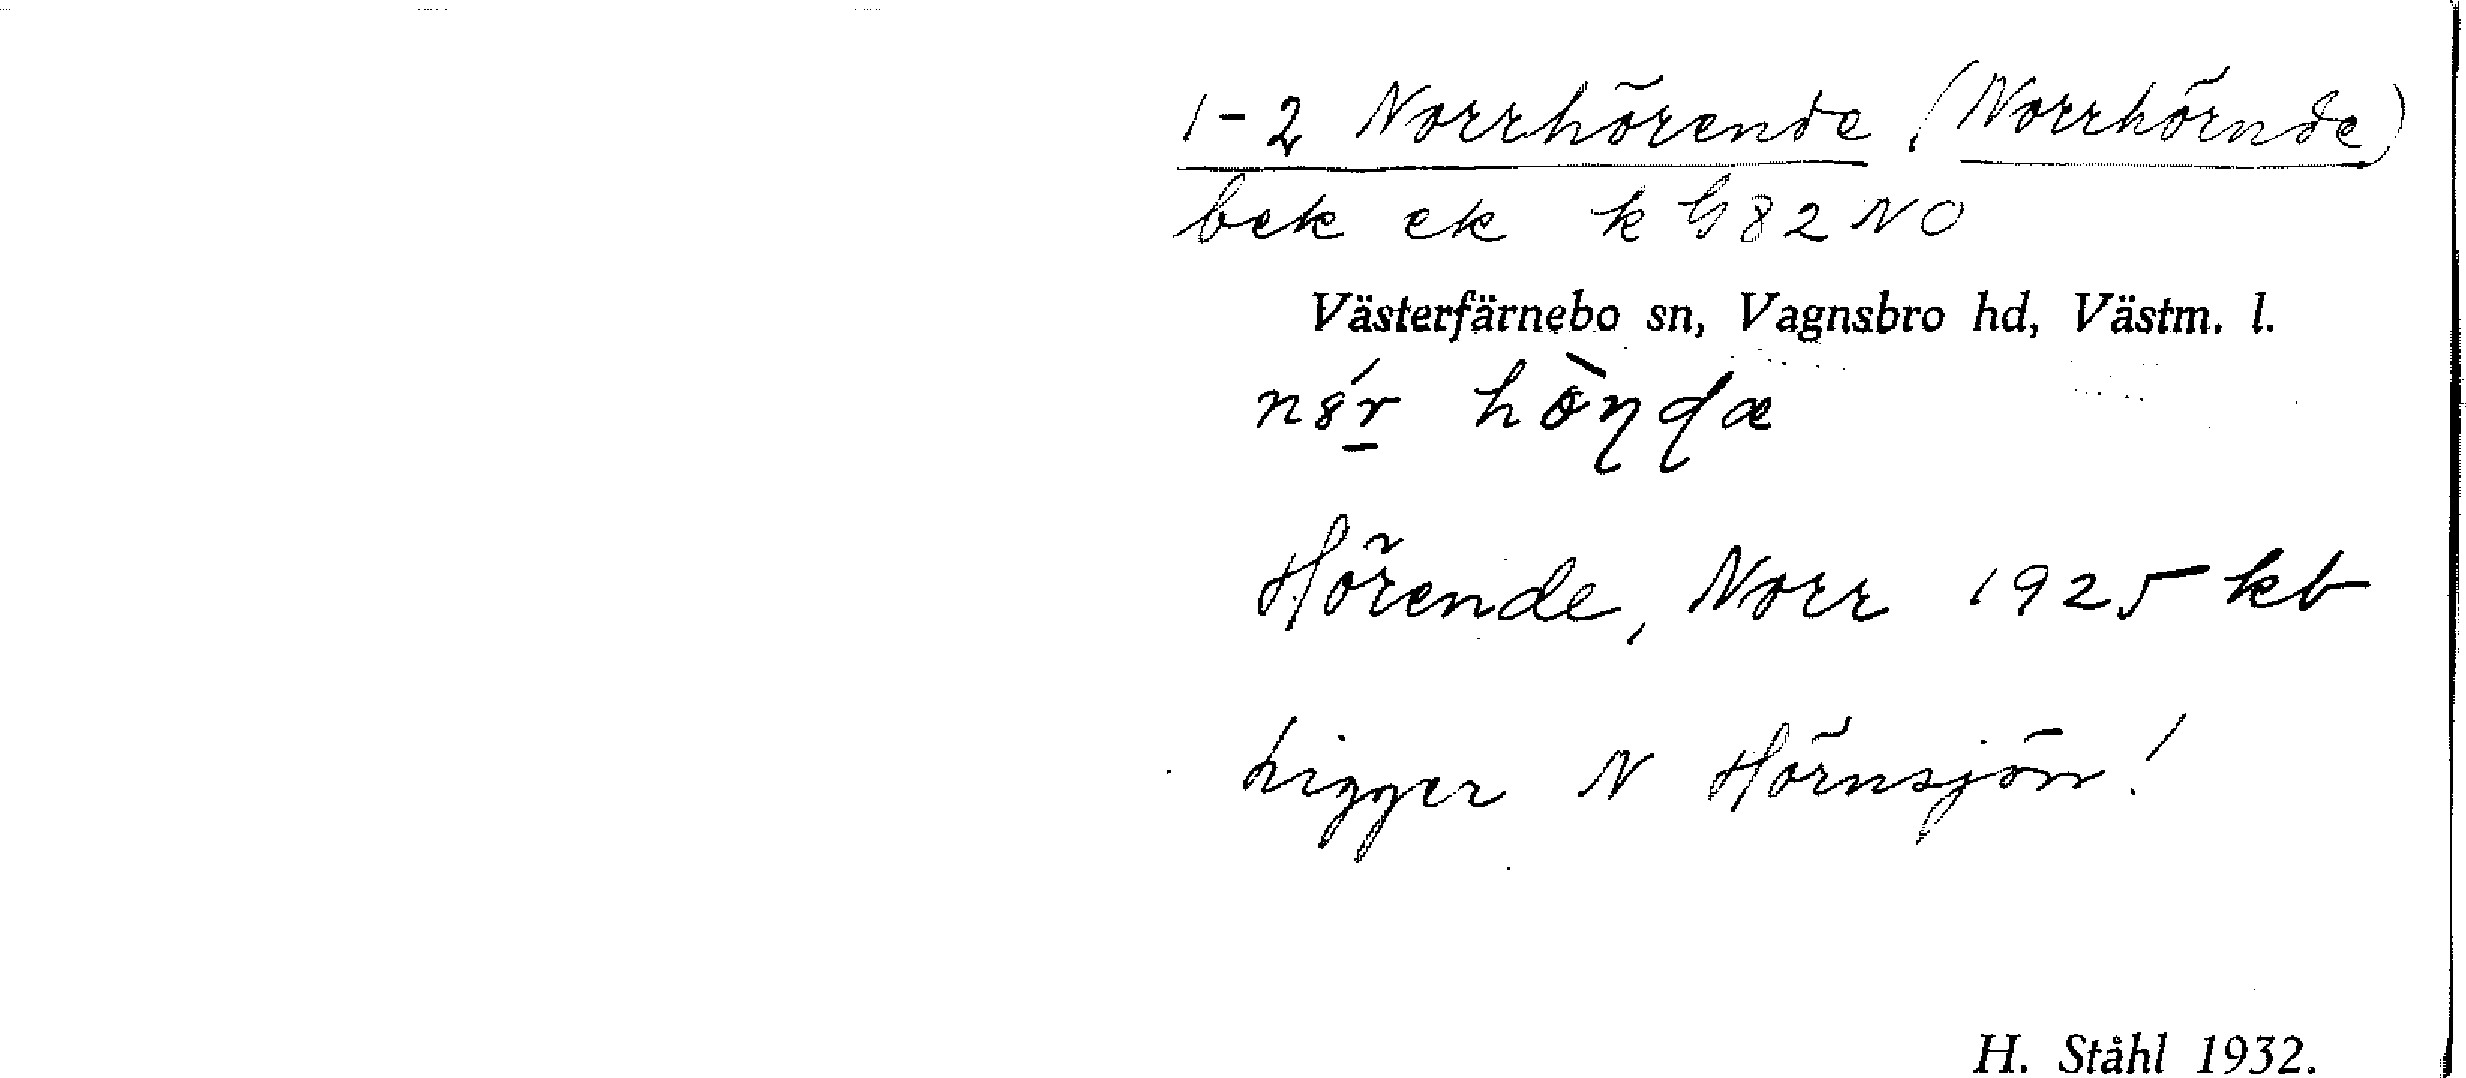 1-2 Norrhörende (Norrhörnde)
bek ek k G82NO
Västerfärnebo sn, Vagnsbro hd, Västm. l.
Hörende, Norr 1925 kb
Ligger N Hörnsjön!
H. Ståhl 1932.